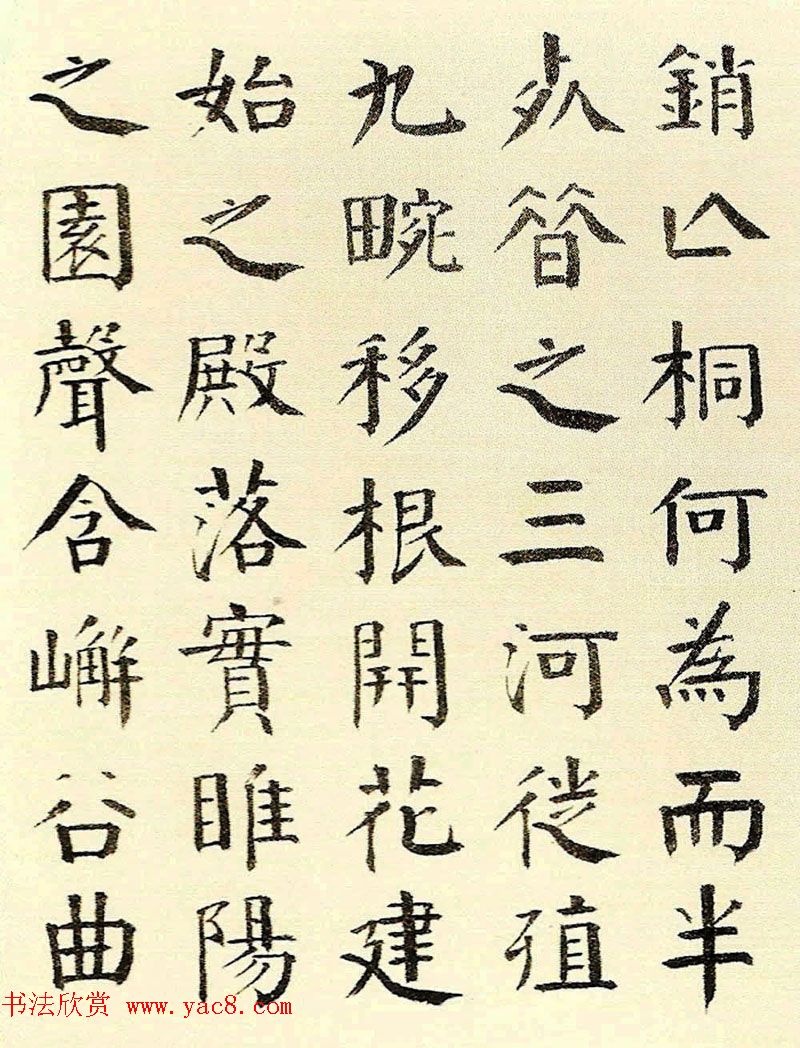 銷亾桐何為而半
死昔之三河徙殖
九畹移根開花建
始之殿落實睢陽
之園聲含嶰谷曲
书法欣赏 www.yac8.com